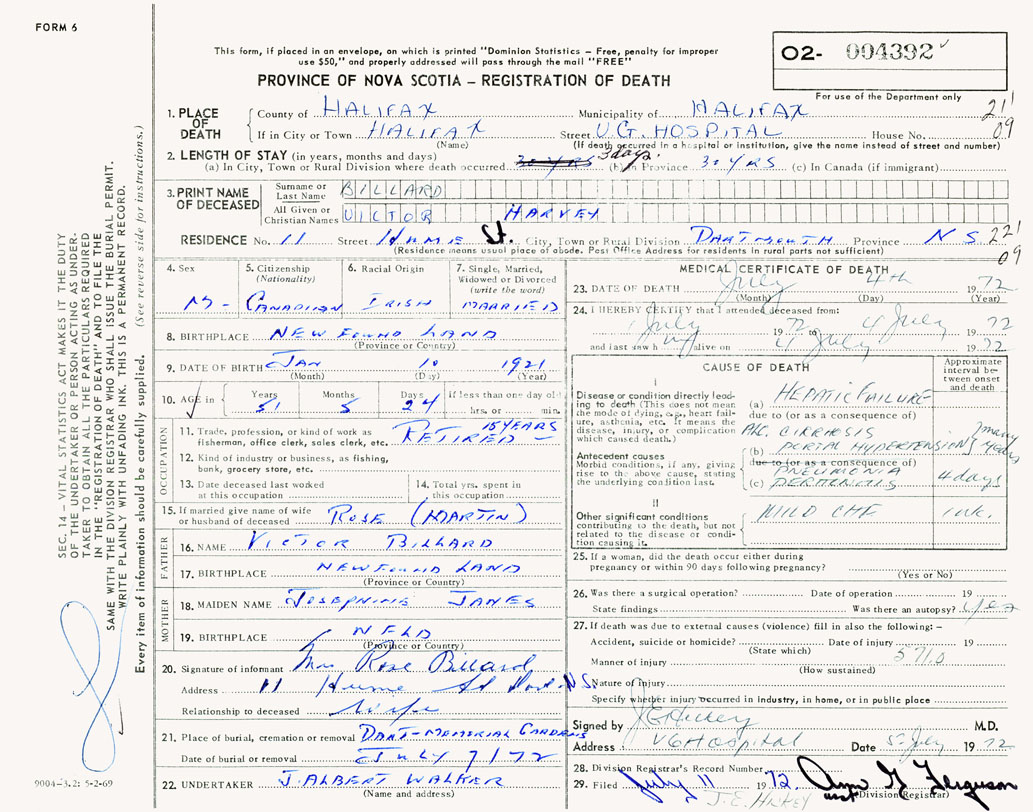 FORM 6
This form, if placed in an envelope, on which is printed "Dominion Statistics – Free, penalty for improper
use $50," and properly addressed will pass through the mail "FREE"
PROVINCE OF NOVA SCOTIA – REGISTRATION OF DEATH
02- 004392
For use of the Department only
1. PLACE OF DEATH
County of HALIFAX Municipality of HALIFAX 21
If in City or Town HALIFAX Street V.G. HOSPITAL House No. 09
(Name) (If death occurred in a hospital or institution, give the name instead of street and number)
2. LENGTH OF STAY (in years, months and days)
(a) In City, Town or Rural Division where death occurred 3 days. (b) In Province 30 YRS (c) In Canada (if immigrant)
3. PRINT NAME OF DECEASED
Surname or Last Name BILLARD
All Given or Christian Names VICTOR HARVEY
RESIDENCE No. 11 Street HUME St. City, Town or Rural Division DARTMOUTH Province N S 221
(Residence means usual place of abode. Post Office Address for residents in rural parts not sufficient) 09
4. Sex M-
5. Citizenship (Nationality) CANADIAN
6. Racial Origin IRISH
7. Single, Married, Widowed or Divorced (write the word) MARRIED
8. BIRTHPLACE NEWFOUNDLAND
(Province or Country)
9. DATE OF BIRTH JAN 10 1921
(Month) (Day) (Year)
10. AGE in Years 51 Months 5 Days 24 if less than one day old hrs. or min.
OCCUPATION
11. Trade, profession, or kind of work as fisherman, office clerk, sales clerk, etc. RETIRED 15 YEARS
12. Kind of industry or business, as fishing, bank, grocery store, etc.
13. Date deceased last worked at this occupation
14. Total yrs. spent in this occupation
15. If married give name of wife or husband of deceased ROSE (MARTIN)
FATHER
16. NAME VICTOR BILLARD
17. BIRTHPLACE NEWFOUNDLAND
(Province or Country)
MOTHER
18. MAIDEN NAME JOSEPHINE JANES
19. BIRTHPLACE NFLD
(Province or Country)
20. Signature of informant Mrs Rose Billard
Address 11 Hume St Dart N.S.
Relationship to deceased Wife
21. Place of burial, cremation or removal DART-MEMORIAL GARDENS
Date of burial or removal JULY 7/72
22. UNDERTAKER J. ALBERT WALKER
(Name and address)
MEDICAL CERTIFICATE OF DEATH
23. DATE OF DEATH July 4th 1972
(Month) (Day) (Year)
24. I HEREBY CERTIFY that I attended deceased from:
1 July 72 to 4 July 1972
and last saw h alive on 4 July 1972
CAUSE OF DEATH
Approximate interval between onset and death
I
Disease or condition directly leading to death (This does not mean the mode of dying, e.g., heart failure, asthenia, etc. It means the disease, injury, or complication which caused death.)
(a) HEPATIC FAILURE
due to (or as a consequence of)
ALC. CIRRHOSIS
Antecedent causes
Morbid conditions, if any, giving rise to the above cause, stating the underlying condition last.
(b) PORTAL HYPERTENSION } many years
due to (or as a consequence of)
PNEUMONIA
(c) 4 days
II
Other significant conditions contributing to the death, but not related to the disease or condition causing it.
MILD CHF
25. If a woman, did the death occur either during pregnancy or within 90 days following pregnancy?
(Yes or No)
26. Was there a surgical operation? Date of operation 19
State findings Was there an autopsy? Yes
27. If death was due to external causes (violence) fill in also the following: –
Accident, suicide or homicide? Date of injury 19
(State which) 571.0
Manner of injury
(How sustained)
Nature of injury
Specify whether injury occurred in industry, in home, or in public place
Signed by J E Hickey M.D.
Address VG Hospital Date 5 July 1972
28. Division Registrar's Record Number
29. Filed July 11 1972. Ann G Ferguson
J.E. HICKEY Division Registrar)
SEC. 14 – VITAL STATISTICS ACT MAKES IT THE DUTY
OF THE UNDERTAKER OR PERSON ACTING AS UNDERTAKER
TO OBTAIN ALL THE PARTICULARS REQUIRED
IN THE "REGISTRATION OF DEATH" AND TO FILE THE
SAME WITH THE DIVISION REGISTRAR WHO SHALL ISSUE THE BURIAL PERMIT.
WRITE PLAINLY WITH UNFADING INK. THIS IS A PERMANENT RECORD.
Every item of information should be carefully supplied. (See reverse side for instructions.)
9004-3.2: 5-2-69